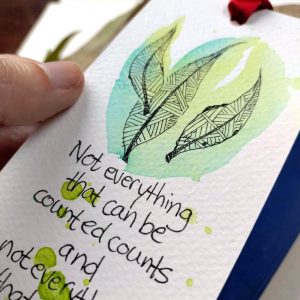 Not everything
that can be
counted counts
and
not everyth
that